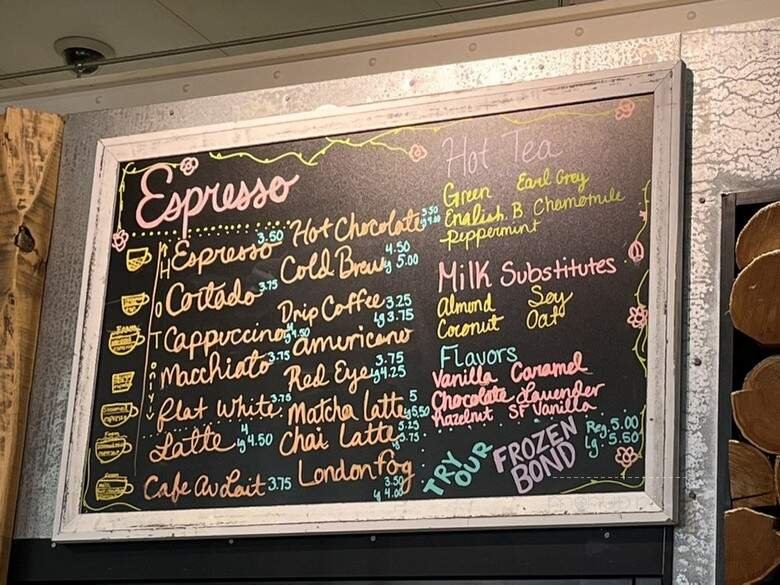 Espresso
HOT ONLY
Espresso 3.50
Cortado 3.75
Cappuccino 4 lg 4.50
Macchiato 3.75
Flat White 3.75
Latte 4 lg 4.50
Cafe Au Lait 3.75
Hot Chocolate 3.50 lg 4.00
Cold Brew 4.50 lg 5.00
Drip Coffee 3.25 lg 3.75
Americano
Red Eye 3.75 lg 4.25
Matcha Latte 5 lg 5.50
Chai Latte 5.25 lg 5.75
London Fog 3.50 lg 4.00
Hot Tea
Green Earl Grey
English. B Chamomile
Peppermint
Milk Substitutes
Almond Soy
Coconut Oat
Flavors
Vanilla Caramel
Chocolate Lavender
Hazelnut SF Vanilla
TRY OUR
FROZEN BOND
Reg. 5.00
lg 5.60